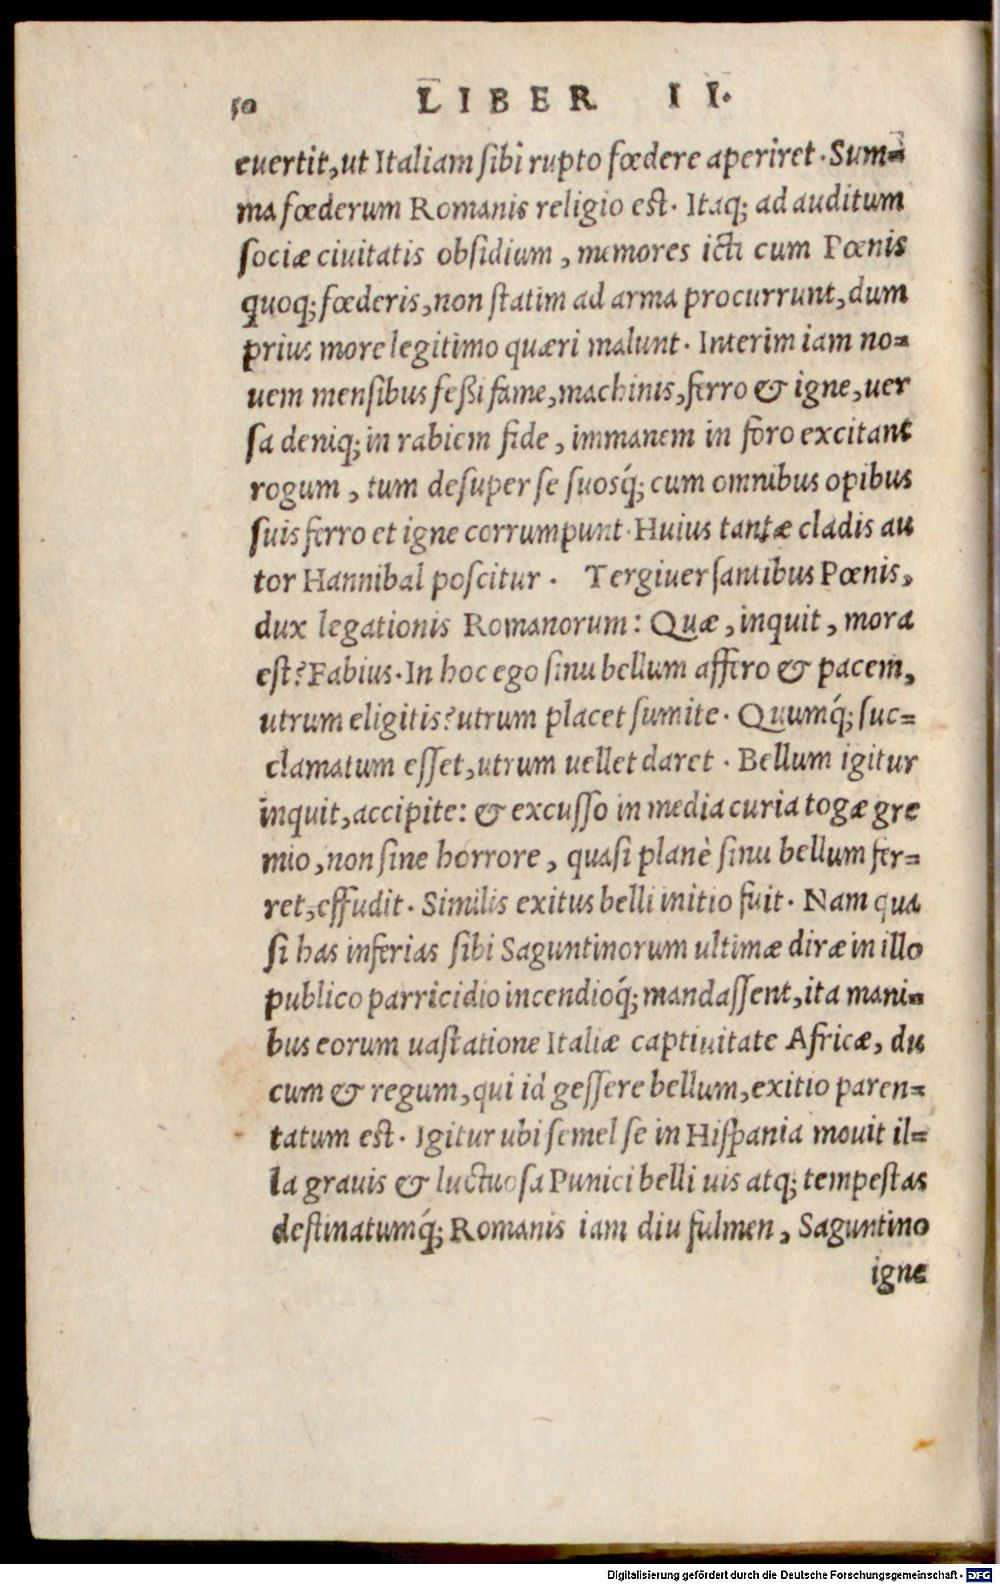 50 LIBER II.
euertit, ut Italiam ſibi rupto fœdere aperiret. Sum=
ma fœderum Romanis religio est. Itaq; ad auditum
ſociæ ciuitatis obſidium, memores icti cum Pœnis
quoq; fœderis, non ſtatim ad arma procurrunt, dum
prius more legitimo quæri malunt. Interim iam no=
uem menſibus feßi fame, machinis, ferro & igne, uer
ſa deniq; in rabiem fide, immanem in foro excitant
rogum, tum deſuper ſe ſuosq́; cum omnibus opibus
ſuis ferro et igne corrumpunt. Huius tantæ cladis au
tor Hannibal poſcitur. Tergiuerſantibus Pœnis,
dux legationis Romanorum: Quæ, inquit, mora
est? Fabius. In hoc ego ſinu bellum affero & pacem,
utrum eligitis? utrum placet ſumite. Quumq́; ſuc=
clamatum eſſet, utrum uellet daret. Bellum igitur
inquit, accipite: & excuſſo in media curia togæ gre
mio, non ſine horrore, quaſi planè ſinu bellum fer=
ret, effudit. Similis exitus belli initio fuit. Nam qua
ſi has inferias ſibi Saguntinorum ultimæ diræ in illo
publico parricidio incendioq́; mandaſſent, ita mani=
bus eorum uaſtatione Italiæ captiuitate Africæ, du
cum & regum, qui id geſſere bellum, exitio paren=
tatum est. Igitur ubi ſemel ſe in Hiſpania mouit il=
la grauis & luctuoſa Punici belli uis atq; tempeſtas
deſtinatumq́; Romanis iam diu fulmen, Saguntino
igne
Digitalisierung gefördert durch die Deutsche Forschungsgemeinschaft - DFG